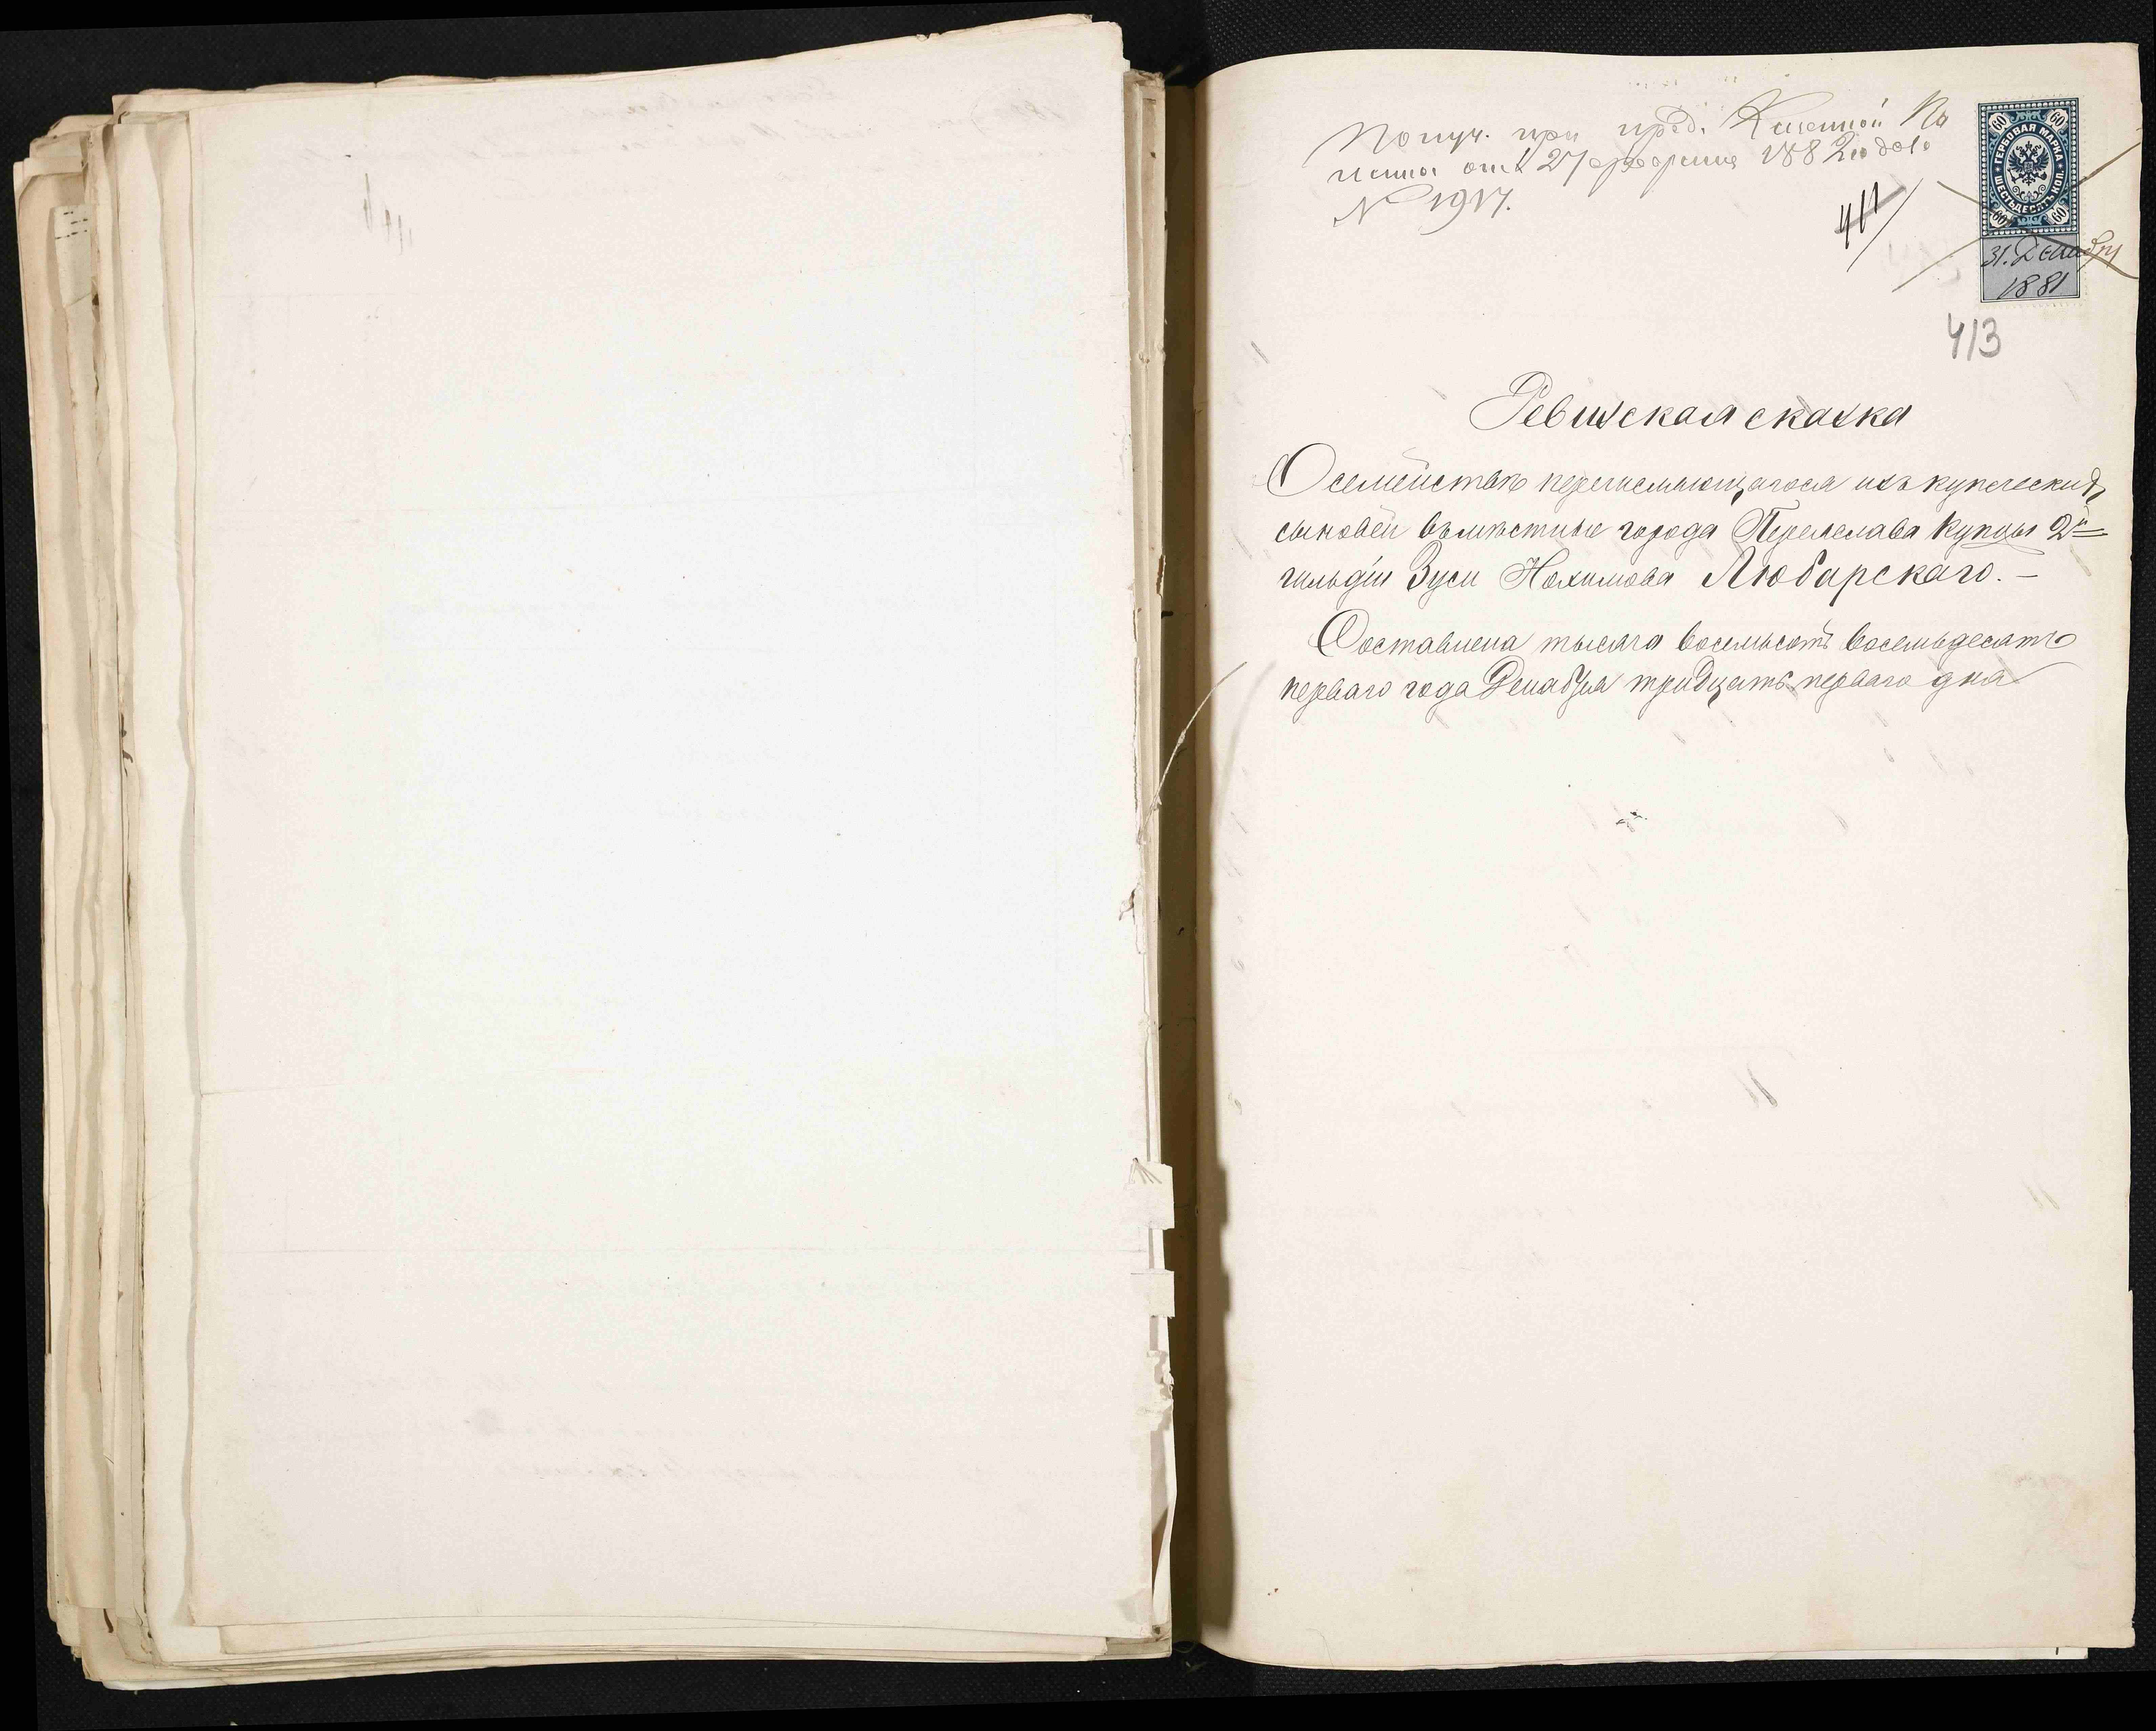 Получ. при пред. Казенной Па
латы отъ 27 февраля 1882 года
№ 1917.
411
60 60
ГЕРБОВАЯ МАРКА
ШЕСТЬДЕСЯТЪ КОП.
60 60
31. Декабря
1881
413
Ревизская сказка
О семействѣ перечисляющагося изъ купеческихъ
сыновей въ мѣстные города Переяслава купцы 2й
гильдіи Зуси Нохимова Любарскаго. —
Составлена тысяча восемьсотъ восемьдесятъ
перваго года Декабря тридцать перваго дня